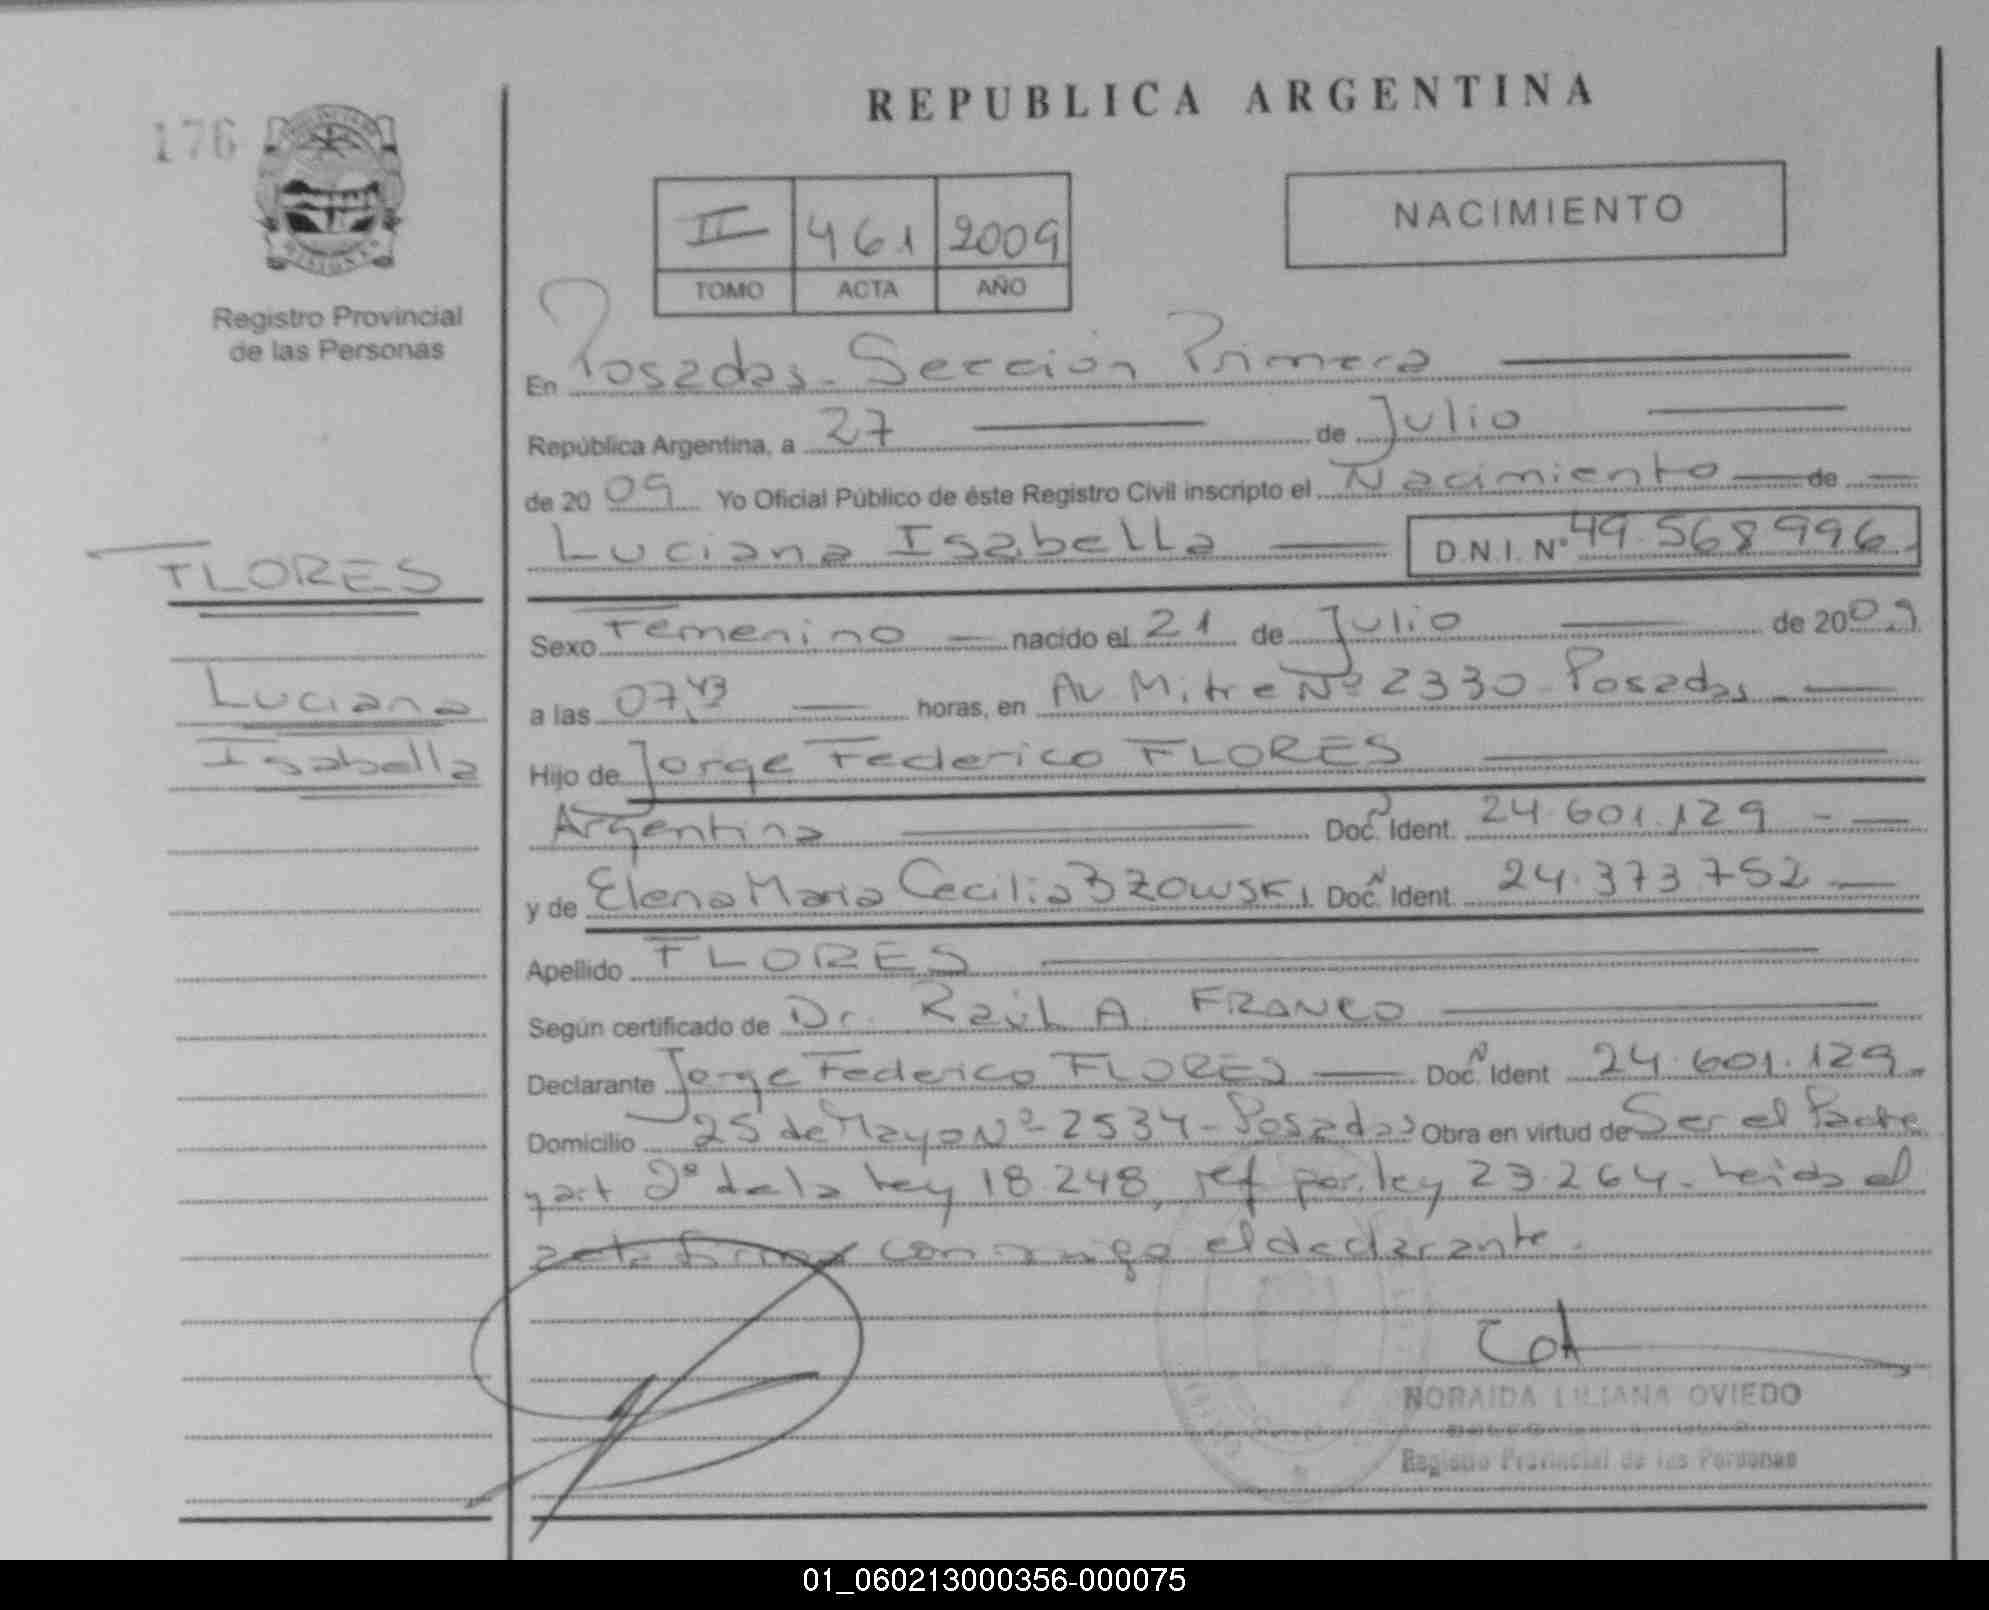 REPUBLICA ARGENTINA
176
II 461 2009
TOMO ACTA AÑO
NACIMIENTO
Registro Provincial
de las Personas
En Posadas - Sección Primera
República Argentina, a 27 de Julio
de 2009 Yo Oficial Público de éste Registro Civil inscripto el Nacimiento de
Luciana Isabella D.N.I. Nº 49.568.996.
FLORES
Luciana
Isabella
Sexo Femenino nacido el 21 de Julio de 2009
a las 07,43 horas, en Av Mitre Nº 2330 - Posadas -
Hijo de Jorge Federico FLORES
Argentina Doc. Ident. 24.601.129 -
y de Elena Maria Cecilia BZOWSKI Doc. Ident. 24.373.752
Apellido FLORES
Según certificado de Dr. Raúl A. FRANCO
Declarante Jorge Federico FLORES Doc. Ident 24.601.129
Domicilio 25 de Mayo Nº 2534 - Posadas Obra en virtud de Ser el Padre
y art 2º de la Ley 18.248, ref por ley 23.264. Leida el
acta firma conmigo el declarante.
NORAIDA LILIANA OVIEDO
Registro Provincial de las Personas
01_060213000356-000075